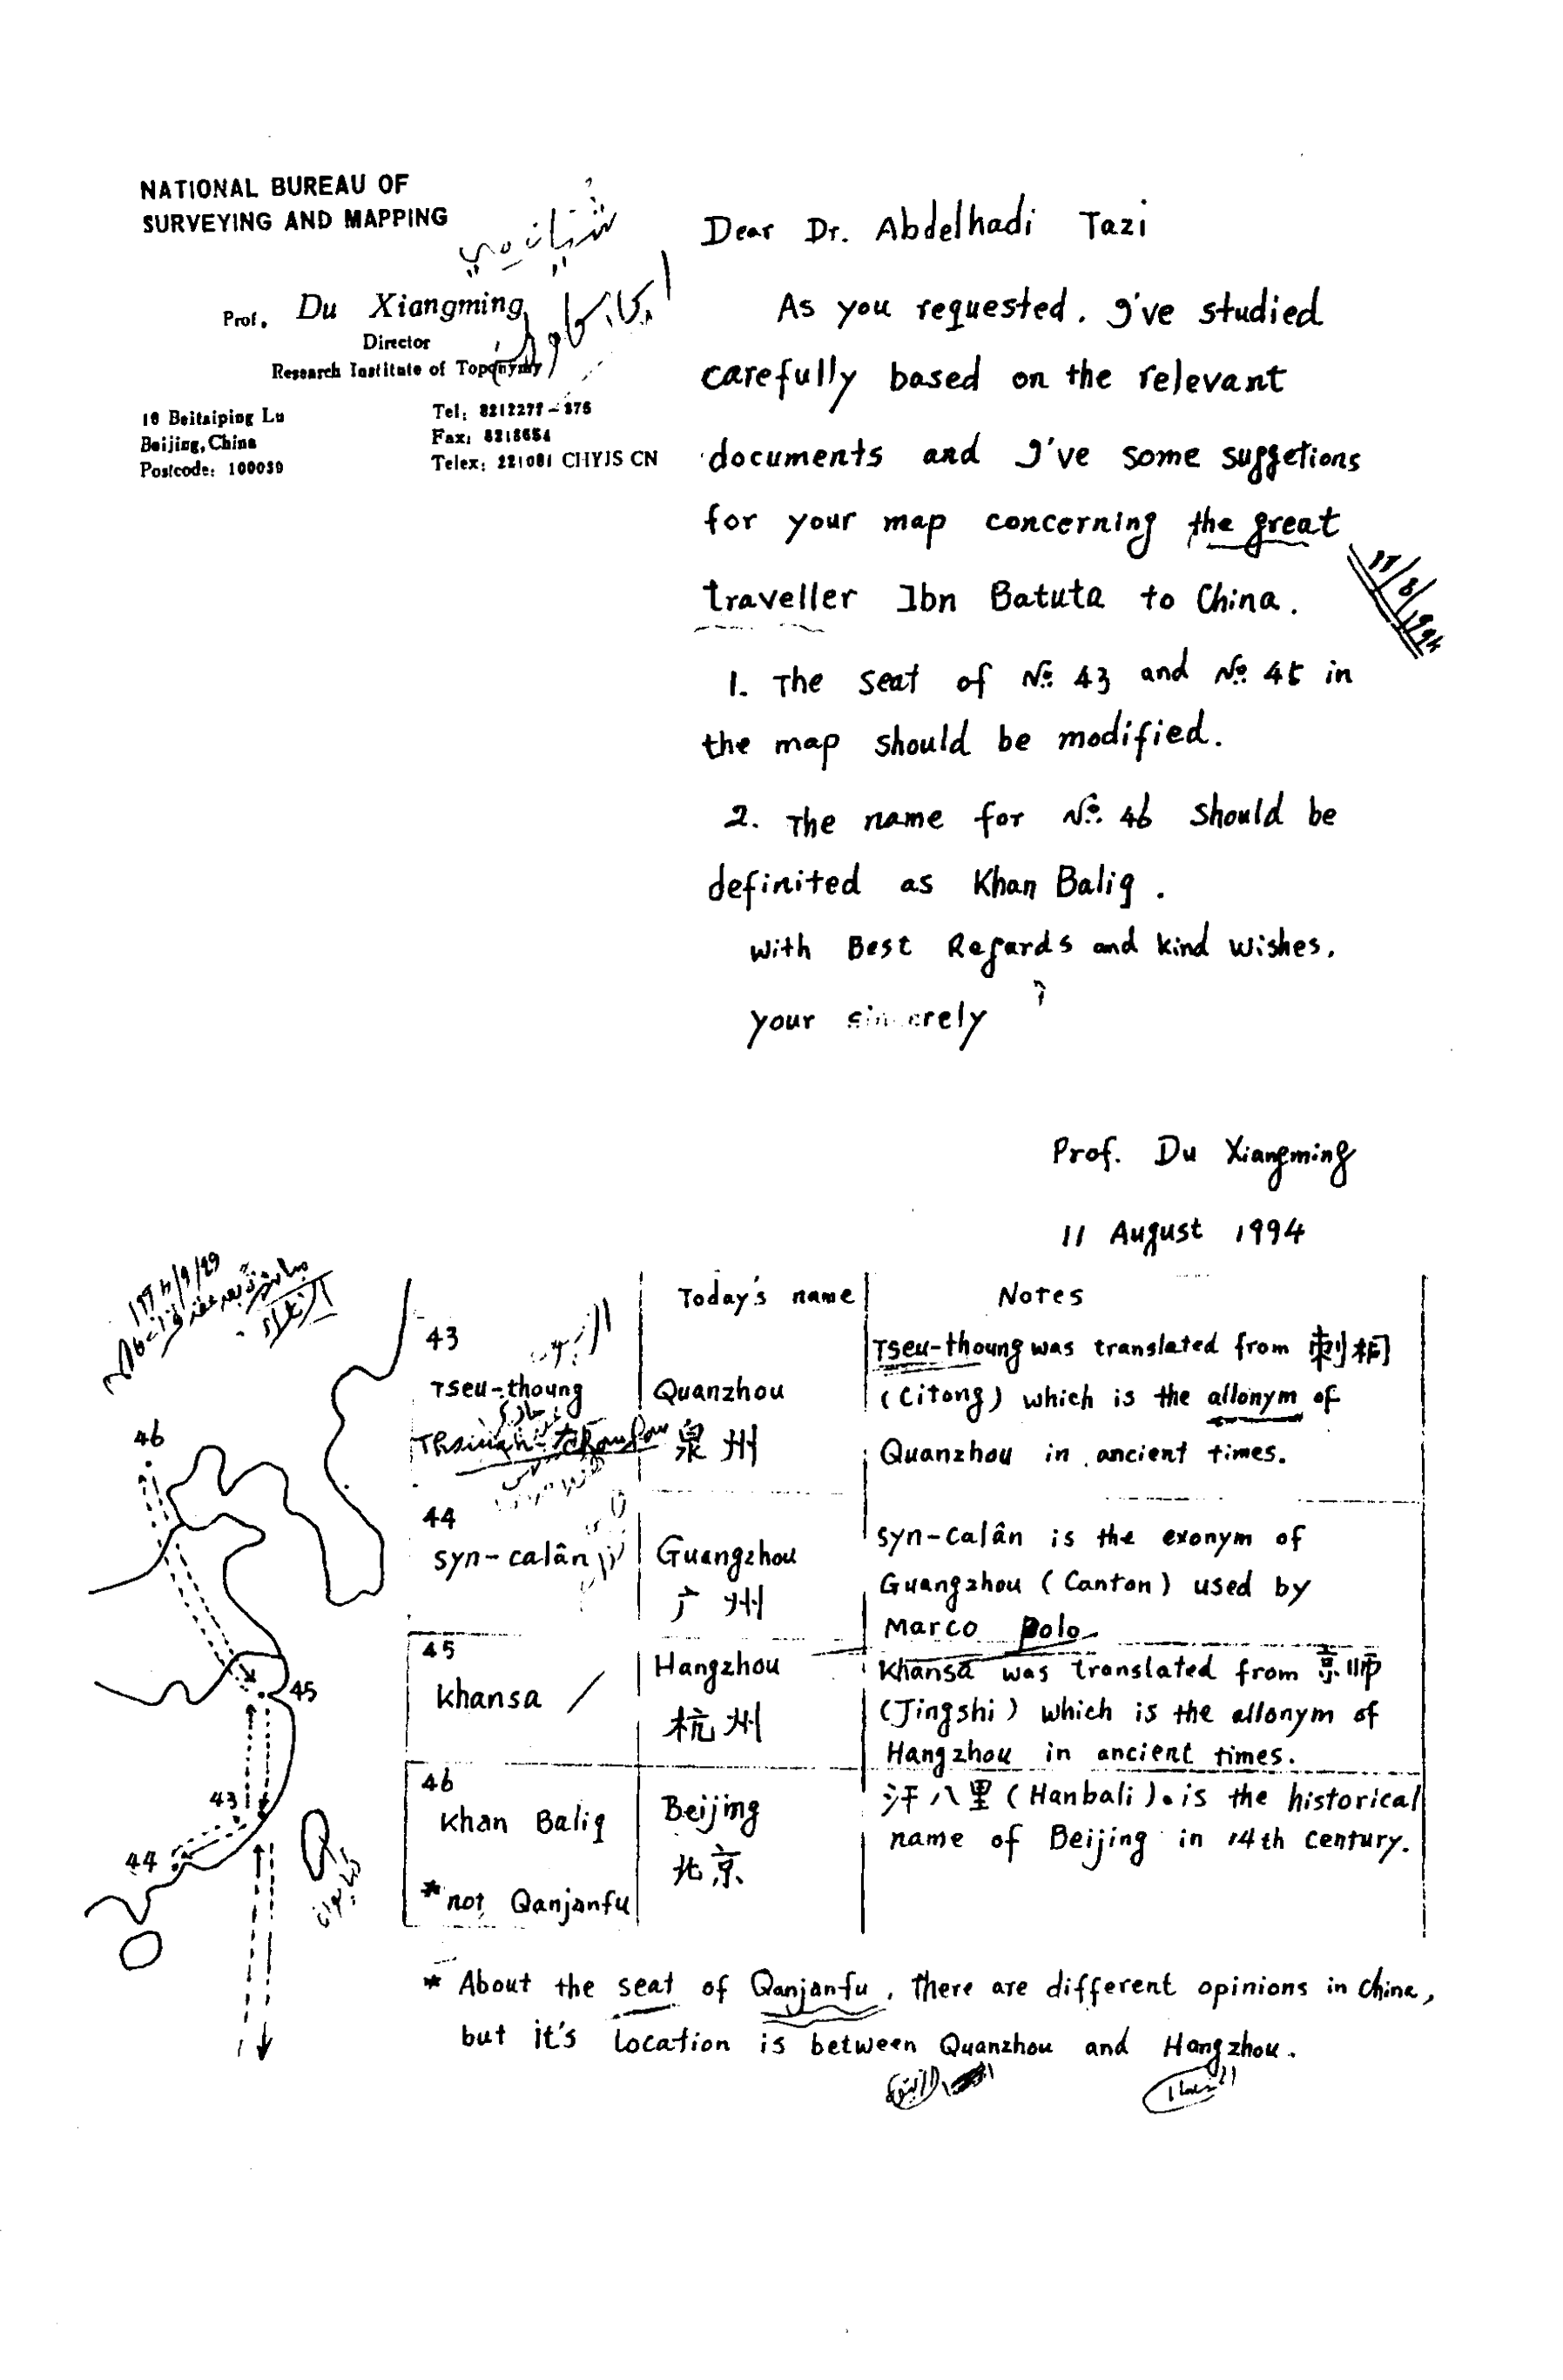 NATIONAL BUREAU OF
SURVEYING AND MAPPING
Prof. Du Xiangming
Director
Research Institute of Toponymy
Beitaiping Lu
Beijing, China
Postcode: 100039
Tel: 8212277-375
Fax: 8218654
Telex: 221081 CHYJS CN
Dear Dr. Abdelhadi Tazi
As you requested. I've studied
carefully based on the relevant
documents and I've some suggetions
for your map concerning the great
traveller Ibn Batuta to China.
1. The seat of No. 43 and No. 45 in
the map should be modified.
2. The name for No. 46 should be
definited as Khan Baliq.
with Best Regards and kind wishes.
your sincerely
Prof. Du Xiangming
11 August 1994
Today's name Notes
43
Tseu-thoung
Quanzhou
泉州
Tseu-thoung was translated from 刺桐
(Citong) which is the allonym of
Quanzhou in ancient times.
44
Syn-calân
Guangzhou
广州
Syn-Calân is the exonym of
Guangzhou (Canton) used by
Marco Polo
45
Khansa
Hangzhou
杭州
Khansa was translated from 京师
(Jingshi) which is the allonym of
Hangzhou in ancient times.
46
Khan Baliq
*not Qanjanfu
Beijing
北京
汗八里 (Hanbali). is the historical
name of Beijing in 14th century.
46
45
43
44
* About the seat of Qanjanfu, there are different opinions in China,
but it's location is between Quanzhou and Hangzhou.